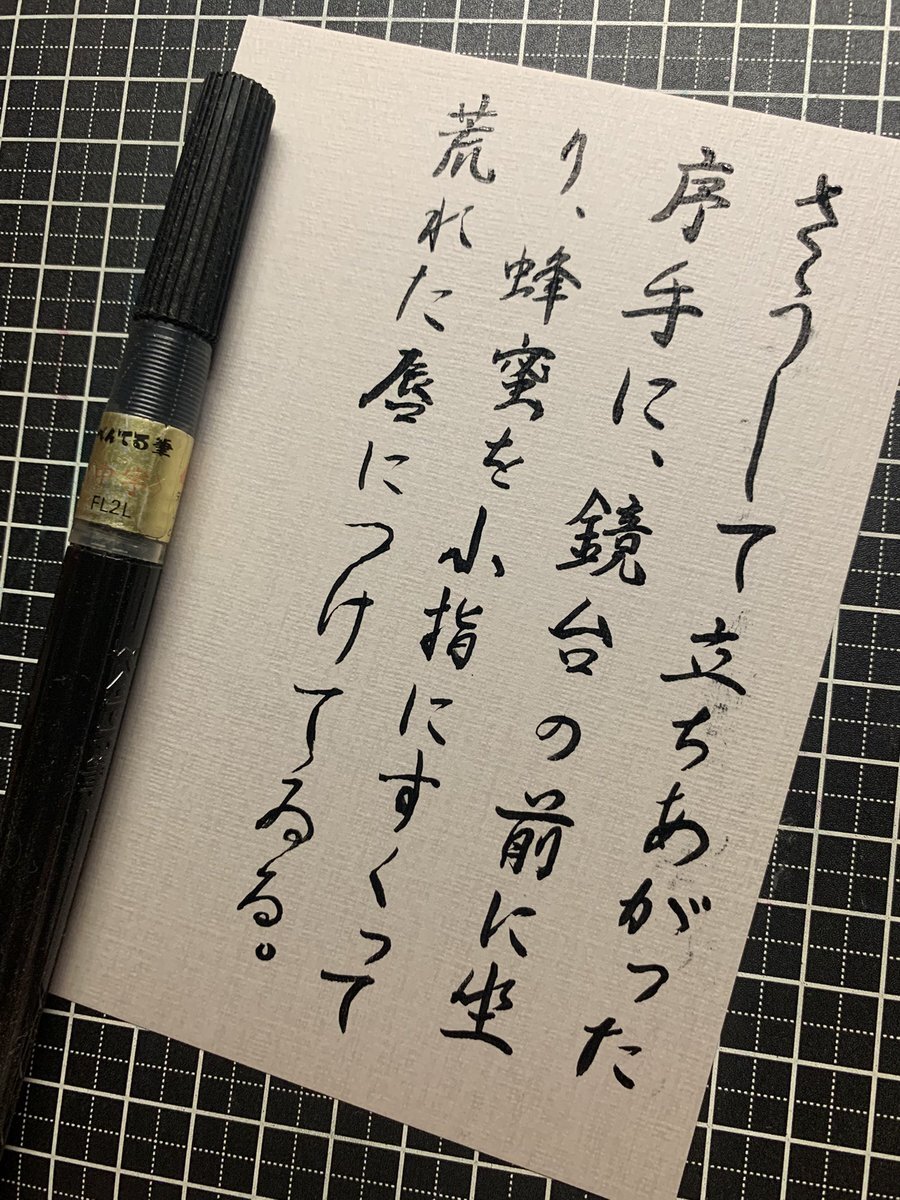 さうして立ちあがった
序手に、鏡台の前に坐
り、蜂蜜を小指にすくって
荒れた唇につけてゐる。
ぺんてる筆
FL2L